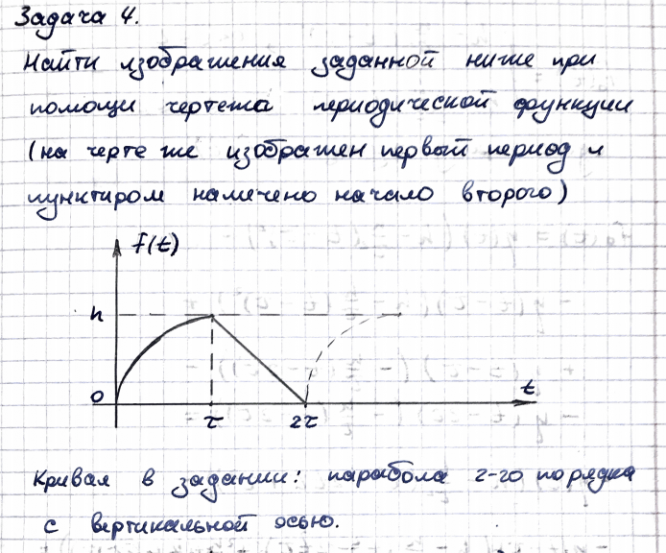 Задача 4.
Найти изображения заданной ниже при
помощи чертежа периодической функции
(на чертеже изображен первый период и
пунктиром намечено начало второго)
f(t)
h
0
τ
2τ
t
Кривая в задании: парабола 2-го порядка
с вертикальной осью.